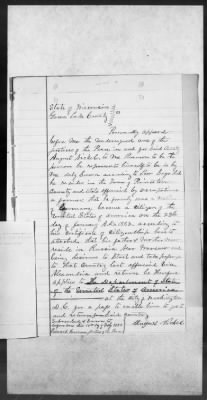 State of Wisconsin }
Green Lake County } SS
Personally appeared
before me the undersigned one of the
justices of the Peace in and for said County
August Nickel to me Known to be the
person he represents himself to be is by
me duly Sworn according to Law Says that
he resides in the Town of Princeton
County and state aforesaid by occupation
a farmer, that he formerly was a native
of Germany became a Citizen of the
United States of America on the 23th
day of January A.D. 1882 according to
his Certificate of Citizenship hereto
attached that his father & mother now
reside in Russia Near Warsaw and
being desirous to Start and take passage
to that Country last aforesaid Via
Alexandria and return he therefore
applies to The Department of State
of the United States of America
at the City of Washington
D.C. for a pass to enable him to go to
and return from said country.
Subscribed & Sworn to
before me this day of July 1882
August Nickel
Justice of the Peace